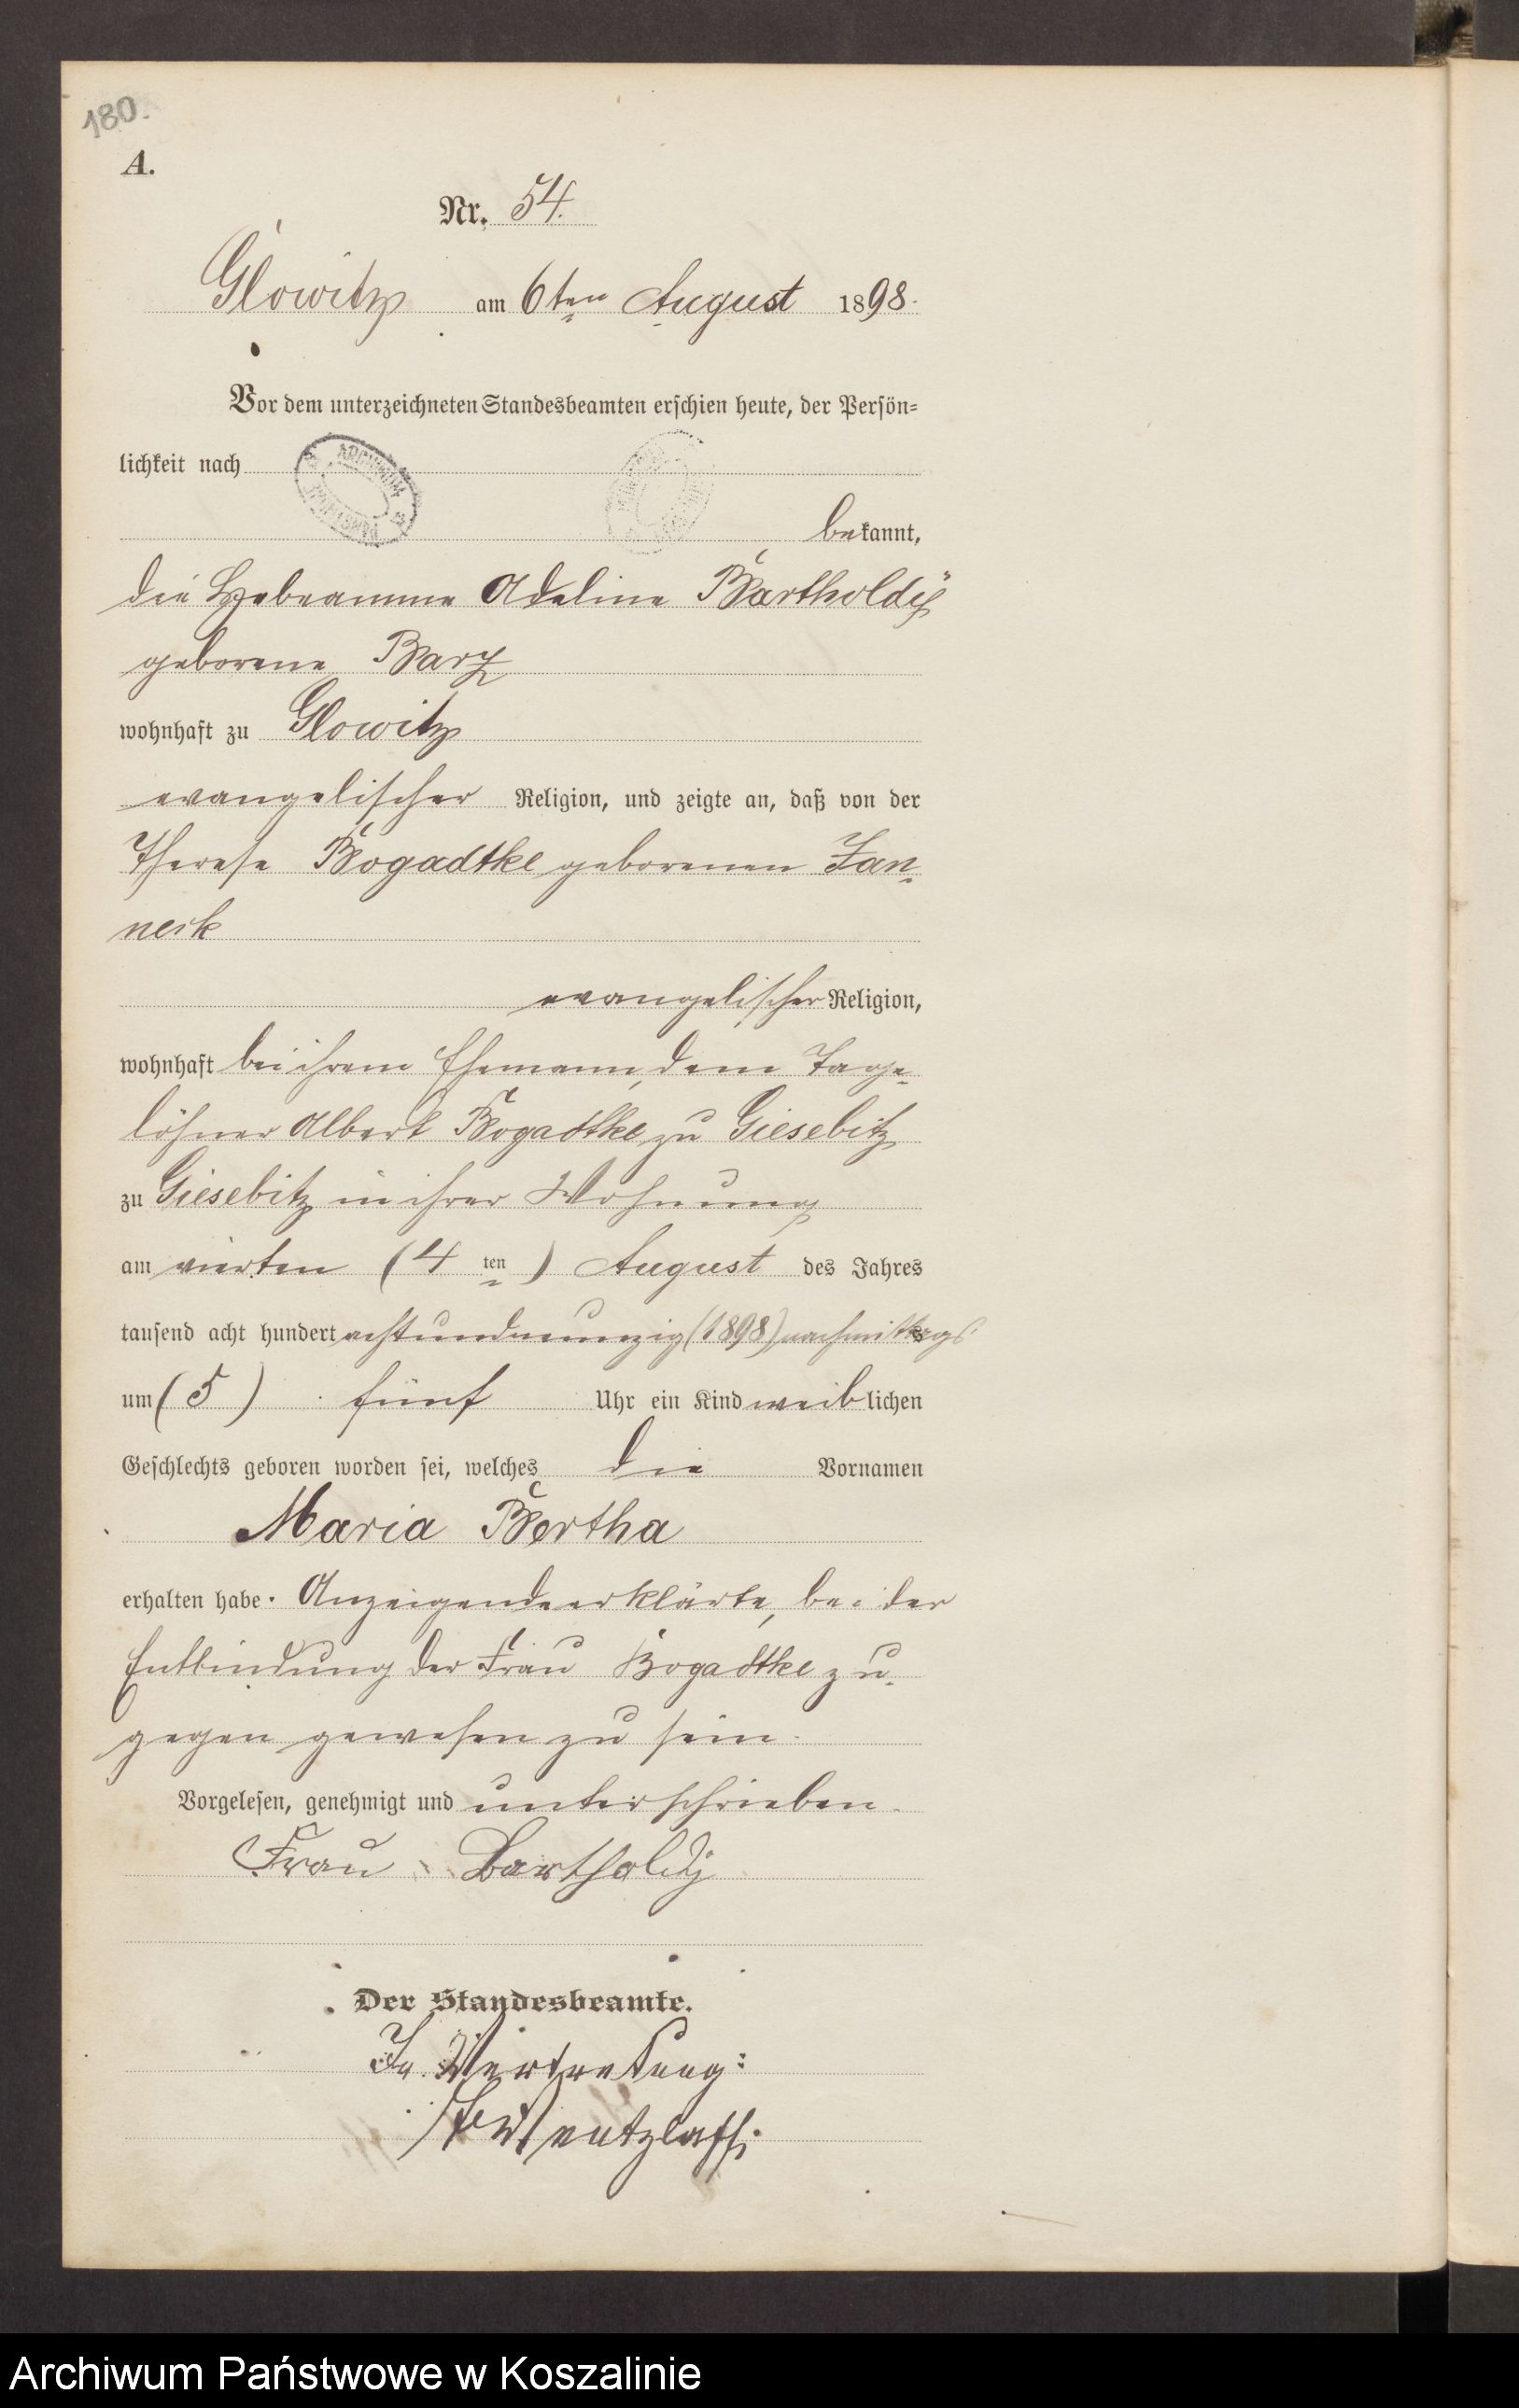 180.
A.
Nr. 54.
Glowitz am 6ten August 1898.
Vor dem unterzeichneten Standesbeamten erschien heute, der Persön=
lichkeit nach
ARCHIWUM PAŃSTWOWE
bekannt,
die Hebeamme Adeline Bartholdÿ
geborene Barz
wohnhaft zu Glowitz
evangelischer Religion, und zeigte an, daß von der
Therese Bogadtke geborenen Jan-
neck
evangelischer Religion,
wohnhaft bei ihrem Ehemann, dem Tage-
löhner Albert Bogadtke zu Giesebitz
zu Giesebitz in ihrer Wohnung
am vierten (4 ten) August des Jahres
tausend acht hundert achtundneunzig (1898) nachmittags
um (5) fünf Uhr ein Kind weiblichen
Geschlechts geboren worden sei, welches die Vornamen
Maria Bertha
erhalten habe. Anzeigende erklärte, bei der
Entbindung der Frau Bogadtke zu-
gegen gewesen zu sein.
Vorgelesen, genehmigt und unterschrieben.
Frau Bartholdÿ
Der Standesbeamte.
In Vertretung:
Wentzlaff.
Archiwum Państwowe w Koszalinie